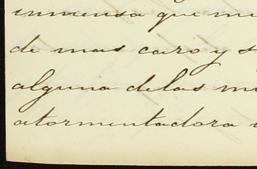 inmensa que mi
de mas caro y s
alguna delas mi
atormentadora